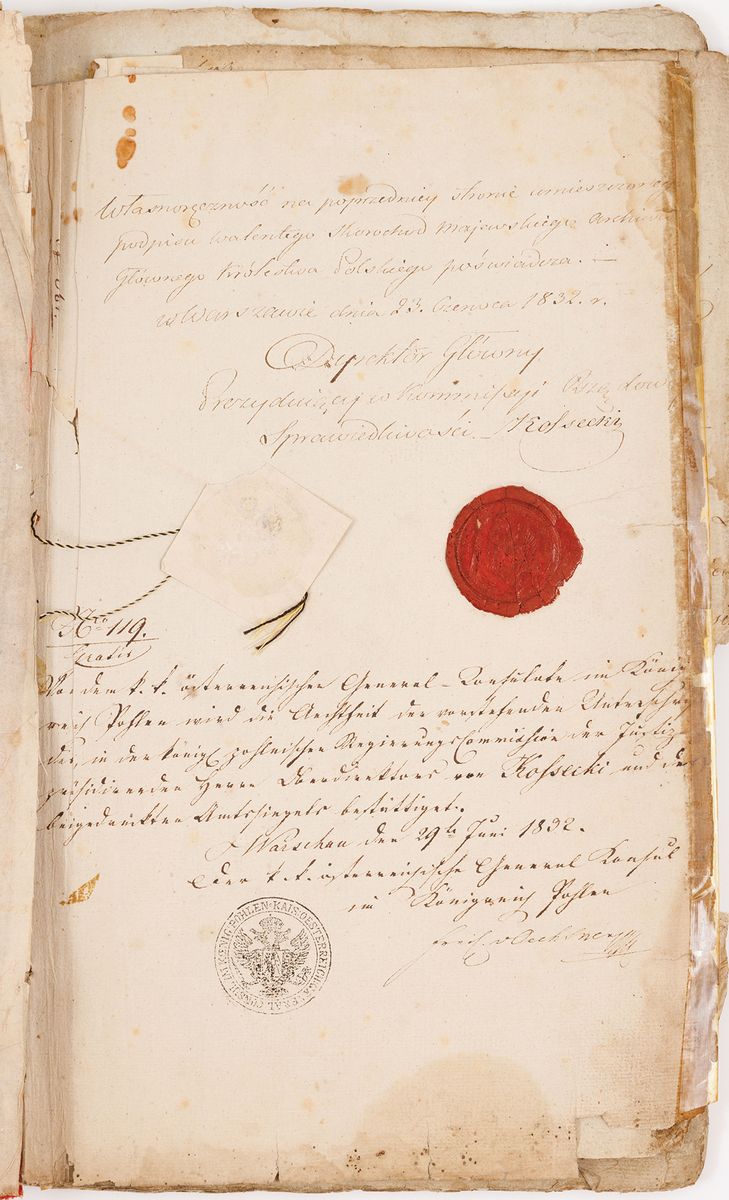 Własnoręczność na poprzedniey stronie umieszczonego
podpisu Walentego Skorochod Majewskiego Archiwisty
Głównego Królestwa Polskiego poświadcza. —
w Warszawie dnia 23. Czerwca 1832. r.
Dyrektor Główny
Prezydujący w Kommissyi Rządowey
Sprawiedliwości Kossecki
Nro 119.
Gratis
Von dem k. k. österreichischen General-Konsulate im König-
reich Pohlen wird die Aechtheit der vorstehenden Unterschrift
des, in der königl. pohlnischen Regierungs Commission der Justiz
präsidirenden Herrn Oberdirektors von Kossecki und des
beigedruckten Amtssiegels bestättiget.
Warschau den 29te Juni 1832.
Der k. k. österreichische General Konsul
im Königreich Pohlen
Freih. v Oechsner
KAIS: OESTERREICH: GENERAL CONSUL: IM KÖNIG: POHLEN